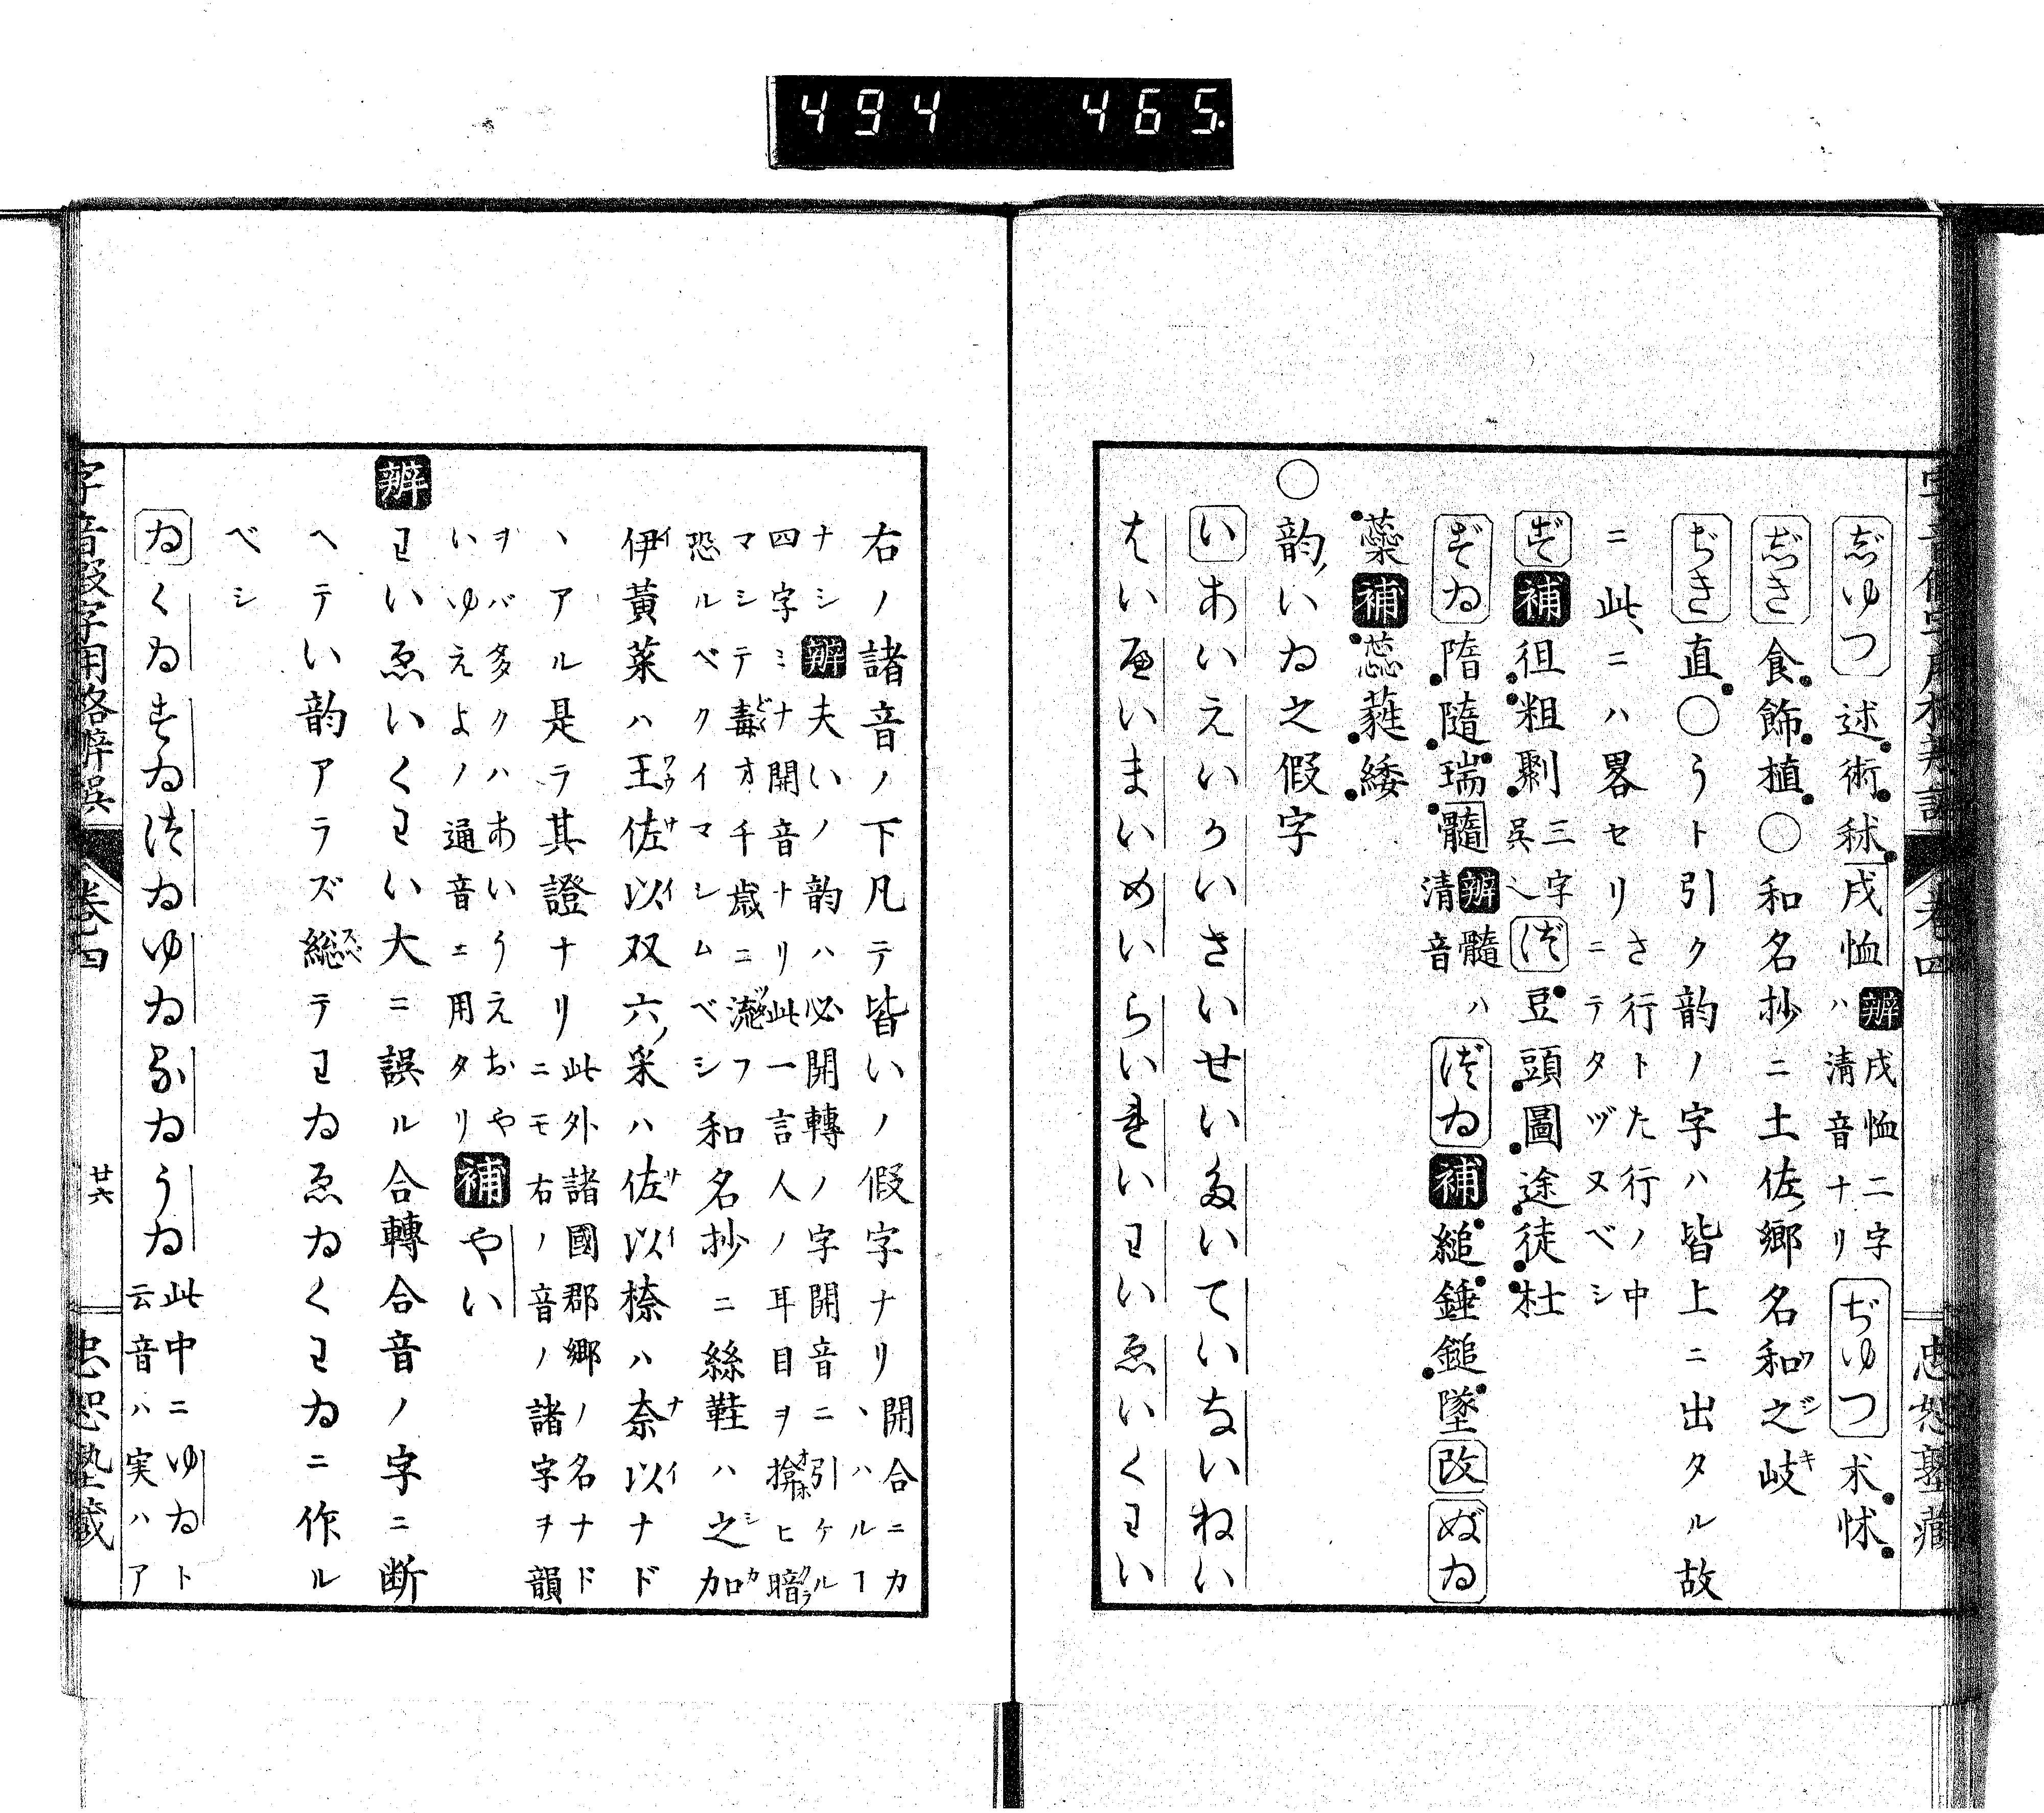 494 465
じゆつ 述術秫戌恤 辨 戌恤二字ハ清音ナリ ぢゆつ 朮怵
じき 食飾植〇和名抄ニ土佐ノ郷名和之岐
ぢき 直〇うト引ク韵ノ字ハ皆上ニ出タル故
ニ此ニハ畧セリ さ行トた行ノ中ニテタヅヌベシ
ず 補 徂粗剿 三字呉 づ 豆頭圖途徒杜
ずゐ 隋隨瑞髓 辨 髓ハ清音 づゐ 補 縋錘鎚墜 改 ぬゐ
蘂 補 蕊蕤緌
〇韵ノいゐ之假字
い あいえいかいさいせいたいていないねい
はいへいまいめいらいれいわいゑいくわい
右ノ諸音ノ下凡テ皆いノ假字ナリ 開合ニカヽハルヿ
ナシ 辨 夫いノ韵ハ必開轉ノ字開音ニ引ケル
四字ミナ開音ナリ此一言人ノ耳目ヲ揜ヒ暗
マシテ毒オ千歳ニ流フ
恐ルベクイマシムベシ和名抄ニ絲鞋ハ之加
伊黄菜ハ王佐以双六ノ采ハ佐以㮏ハ奈以ナド
ヽアル是ラ其證ナリ 此外諸國郡郷ノ名ナドニモ右ノ音ノ諸字ヲ韻
ヲバ多クハあいうえおや
いゆえよノ通音ェ用タリ 補 やい
辨 わいゑいくわい大ニ誤ル合轉合音ノ字ニ断
ヘテい韵アラズ総テわゐゑゐくわゐニ作ル
ベシ
ゐ くゐすゐつゐゆゐるゐうゐ 此中ニゆゐト云音ハ実ハア
字音假字用格辨誤 卷四 廿六 忠恕塾藏
忠恕塾藏